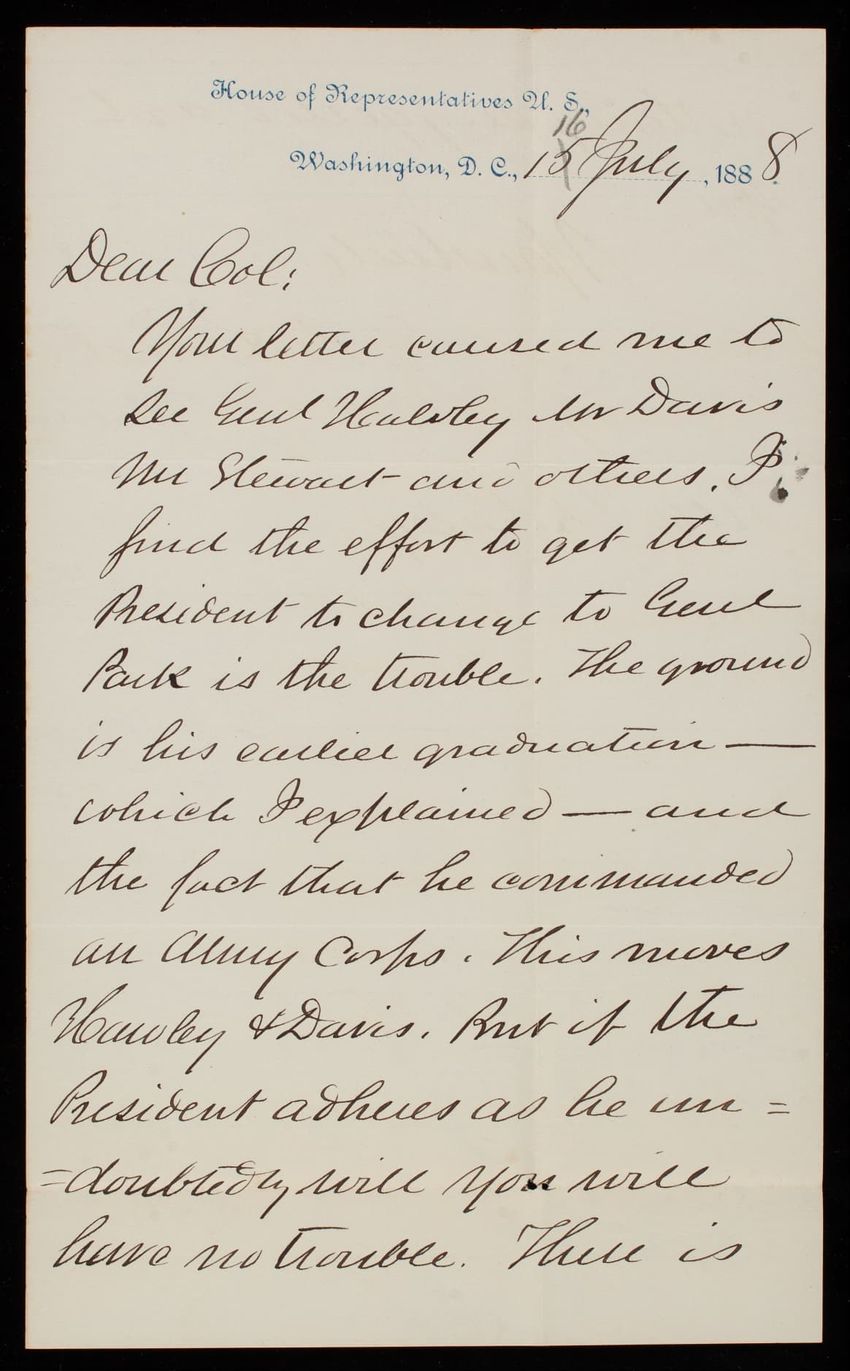 House of Representatives U. S.,
16
Washington, D. C., 15 July, 1888.
Dear Col:
Your letter caused me to
see Genl Hawley Mr Davis
Mr Stewart and others. I
find the effort to get the
President to change to Genl
Park is the trouble. The ground
is his earlier graduation —
which I explained — and
the fact that he commanded
an Army Corps. This moves
Hawley & Davis. But if the
President adheres as he un=
=doubtedly will you will
have no trouble. There is